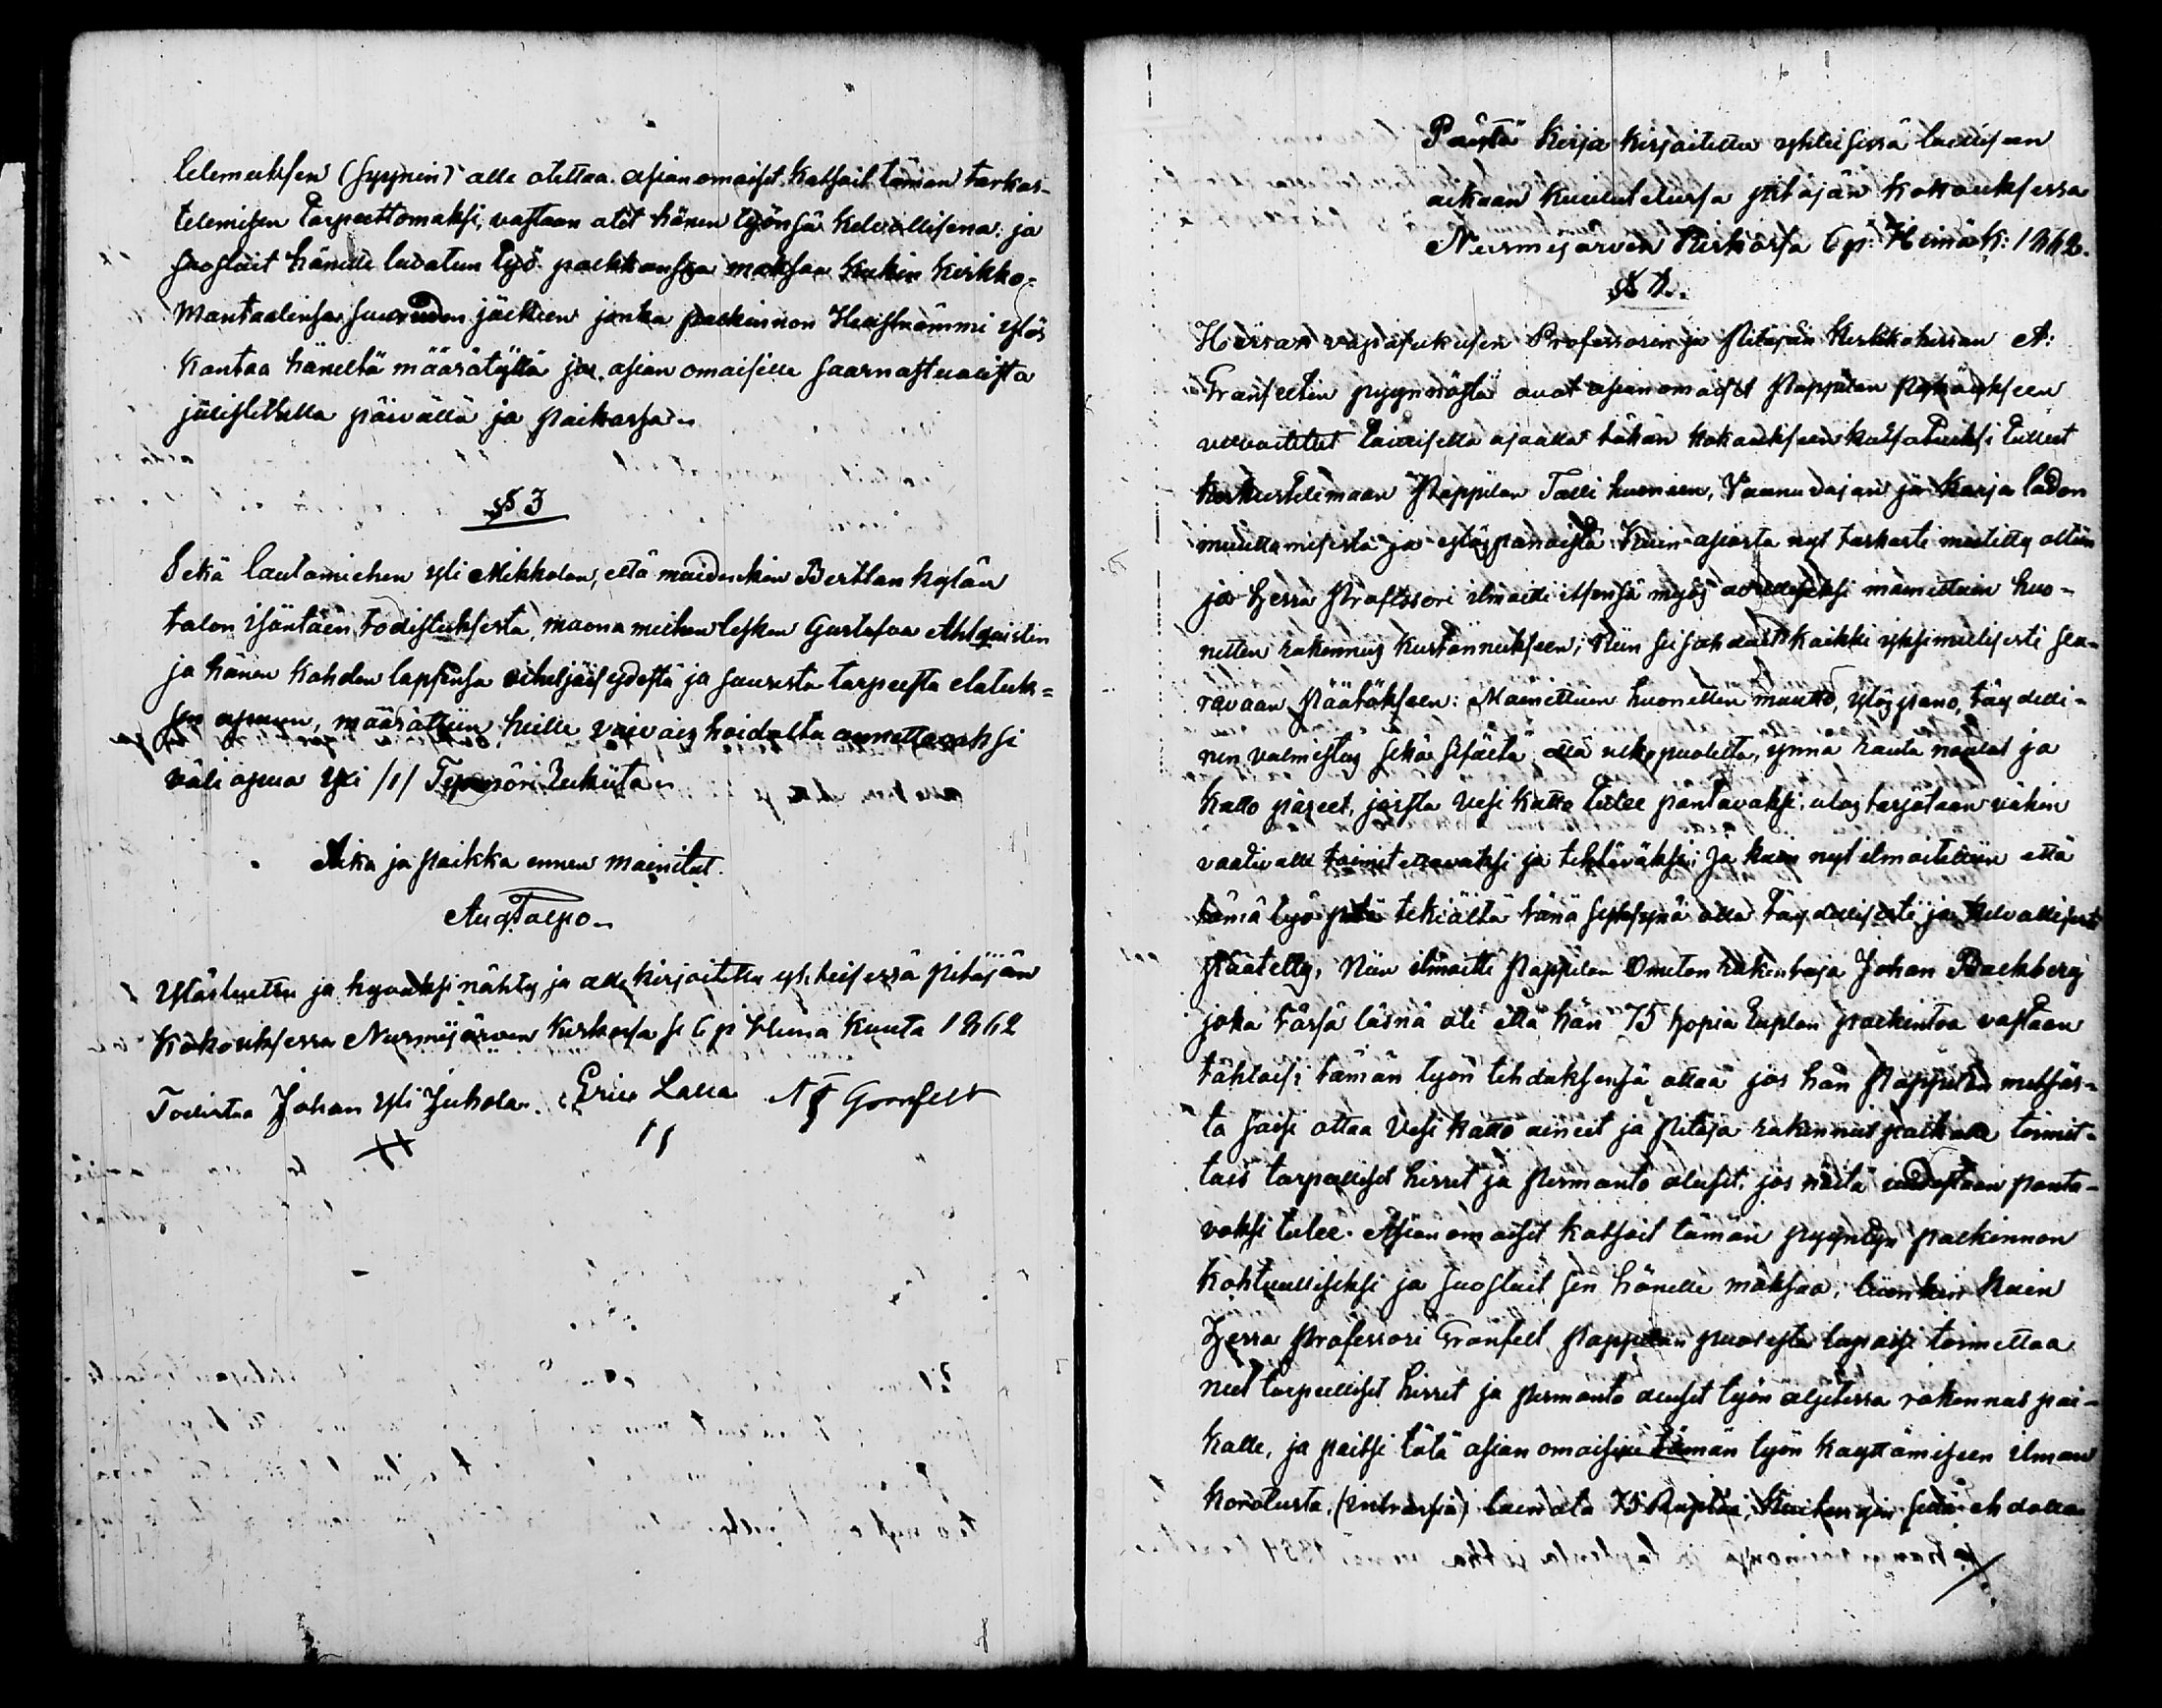 lelemuksen (synin) alle otettaa asianomaiset katsoit tämän tarkas-
telemisen tarpeettomaksi, vastaan otit hänen työnsä kelvollisena, ja
suostuit hänelle luvatun työ palkkansa maksaa kukin kirkko-
Mantaalinsa suuruden jälkeen jonka palkinnon ylös
kantaa häneltä määrätyllä ja asian omaisille saarnastuolista
julistetulla päivällä ja paikassa.
§ 3
Sekä lautamiehen yli Mikkolan, että muidenkin kylän
talon isäntäin todistuksesta, leskken Gustafva Ahlqvistin
ja hänen kahden lapsensa viheljäisydestä ja suuresta tarpeesta elatuk-
sen apuun, määrättiin heille vaivaishoidolta annettavaksi
väli apua yxi /1/ Tynnöri Rukiita.
Aika ja paikka ennen mainitut.
Aug Talpo.
Ylösluettu ja hyväksi nähty ja alle kirjoitettu yhteisessä pitäjän
kokouksessa Nurmijärven kirkossa se 6 p Heinä kuuta 1862
Todistaa Johan yli Juhola. Eric Lalla A F Granfelt
Pöytä kirja kirjoitettu yhteisessä lailliseen
aikaan kuulutetussa pitäjän kokouksessa
Nurmijärven Kirkossa 6 p: Heinäk: 1862.
§ 1.
Herran vapasukuisen Professorin ja Pitäjän Kirkkoherran A:
Granfeltin pyynnöstä ovat asianomaiset Pappilan
laillisella ajalla tähän kokoukseen kutsutuksi tulleet
keskustelemaan Pappilan Talli huoneen, Vaunuvajan ja karja ladon
muuttamisesta ja ylöspanoista. Kuin asiasta nyt tarkasti mietitty oltiin
ja Herra Professori ilmoitti itsensä myös avulliseksi mainittuin huo-
netten rakennus kustannukseen; Niin seisahdatti kaikki yksimielisesti seu-
ravaan Päätökseen: Mainittuin huonetten muutto, ylöspano, täydelli-
nen valmistus sekä sisältä että ulkopuolelta, ynnä rauta naulat ja
katto päreet, joista vesi katto tulee pantavaksi, ulos tarjotaan vähin
vaativalle toimitettavaksi ja tehtäväksi; Ja kuin nyt ilmoitettiin että
tämä työ pitä tekiältä tänä syksynä olla täydellisesti ja kelvollisesti
päätetty, Niin ilmoitti Pappilan Ometon rakentaja Johan Backberg
joka tässä läsnä oli että hän 75 hopia Ruplan palkintoa vastaan
tahtoisi tämän työn tehdäksensä ottaa jos hän Pappilan metsäs-
tä saisi ottaa Vesi katto aineet ja Pitäjä rakennus paikalle toimit-
tais tarpelliset hirret ja Permanto aluset, jos näitä uudestaan panta-
vaksi tulee. Asianomaiset katsoit tämän pyydtyn palkinnon
kohtuulliseksi ja suostuit sen hänelle maksaa, kuin
Herra Professori Granfelt Pappilan puolesta lupaisi toimittaa
net tarpeelliset hirret ja Permanto aluset työn aljetessa rakennus pai-
kalle, ja paitsi tätä asian omaisille tämän työn käyttämiseen ilman
korotusta, (intressiä) lainata 75 Ruplaa, Kuitengin sillä ehdolla